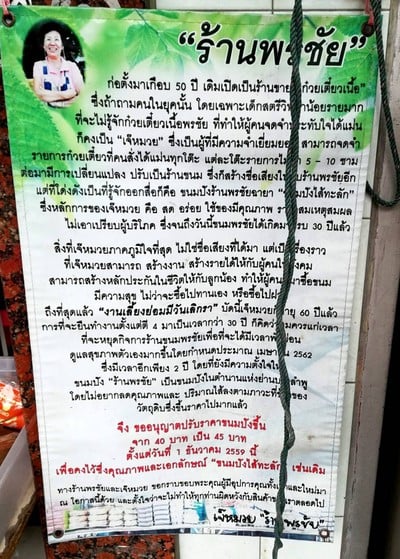 “ร้านพรชัย”
ก่อตั้งมาเกือบ 50 ปี เดิมเปิดเป็นร้านขาย ก๋วยเตี๋ยวเนื้อ”
ซึ่งถ้าถามคนในยุคนั้น โดยเฉพาะเด็กสตรีวิ น้อยรายมาก
ที่จะไม่รู้จักก๋วยเตี๋ยวเนื้อพรชัย ที่ทำให้ผู้คนจดจำ ทับใจได้แม่น
ก็คงเป็น “เจ๊หมวย” ซึ่งเป็นผู้ที่มีความจำเยี่ยมยอด สามารถจดจำ
รายการก๋วยเตี๋ยวที่คนสั่งได้แม่นทุกโต๊ะ แต่ละโต๊ะรายการไม่ 5 - 10 ชาม
ต่อมามีการเปลี่ยนแปลง ปรับเป็นร้านขนม ซึ่งก็สร้างชื่อเสียงให้ ร้านพรชัยอีก
แต่ที่โด่งดังเป็นที่รู้จักออกสื่อก็คือ ขนมปังร้านพรชัยฉายา “ขนมปังไส้ทะลัก”
ซึ่งหลักการของเจ๊หมวย คือ สด อร่อย ใช้ของมีคุณภาพ สมเหตุสมผล
ไม่เอาเปรียบผู้บริโภค ซึ่งจนถึงวันนี้ขนมปังร้านพรชัยได้เกิดมา 30 ปีแล้ว
สิ่งที่เจ๊หมวยภาคภูมิใจที่สุด ไม่ใช่ชื่อเสียงที่ได้มา แต่เป็นเรื่องราว
ที่เจ๊หมวยสามารถ สร้างงาน สร้างรายได้ให้กับผู้คนใน คม
สามารถสร้างหลักประกันในชีวิตให้กับลูกน้อง ทำให้ผู้คน ซื้อขนม
มีความสุข ไม่ว่าจะซื้อไปทานเอง หรือซื้อไปฝาก
ถึงที่สุดแล้ว “งานเลี้ยงย่อมมีวันเลิกรา” บัดนี้เจ๊หมวย อายุ 60 ปีแล้ว
การที่จะยืนทำงานตั้งแต่ตี 4 มาเป็นเวลากว่า 30 ปี ก็คิดว่า ควรแก่เวลา
ที่จะหยุดกิจการร้านขนมพรชัยเพื่อที่จะได้มีเวลาพักผ่อน
ดูแลสุขภาพตัวเองมากขึ้นโดยกำหนดประมาณ เมษายน 2562
ซึ่งมีเวลาอีกเพียง 2 ปี โดยที่ยังมีความตั้งใจใน
ขนมปัง “ร้านพรชัย” เป็นขนมปังในตำนานแห่งย่านบางลำพู
โดยไม่อยากลดคุณภาพและ ปริมาณไส้ลงตามภาวะที่
วัตถุดิบซึ่งขึ้นราคาไปมากแล้ว
จึง ขออนุญาตปรับราคาขนมปังขึ้น
จาก 40 บาท เป็น 45 บาท
ตั้งแต่วันที่ 1 ธันวาคม 2559 นี้
เพื่อคงไว้ซึ่งคุณภาพและเอกลักษณ์ “ขนมปังไส้ทะลัก” เช่นเดิม
ทางร้านพรชัยและเจ๊หมวย ขอกราบขอบพระคุณผู้มีอุปการคุณทั้งเก่าและใหม่มา
ณ โอกาสนี้ด้วย และตั้งใจว่าจะไม่ทำให้ทุกท่านผิดหวังกับสินค้า ตลอดไป
เจ๊หมวย “ร้านพรชัย”